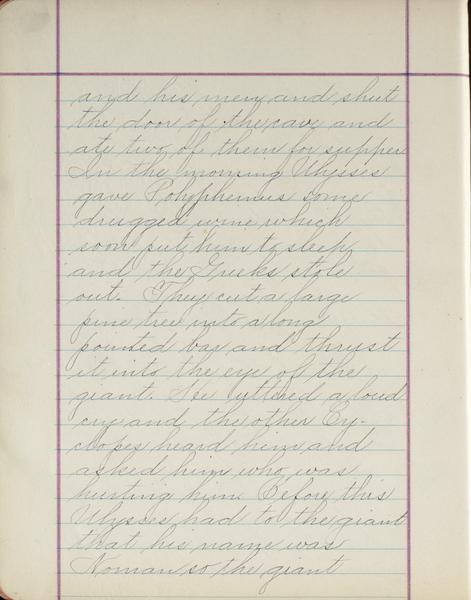 and his men and shut
the door of the cave and
ate two of them for supper
In the morning Ulysses
gave Polyphemus some
drugged wine which
soon put him to sleep
and the Greeks stole
out. They cut a large
pine tree into a long
pointed bar and thrust
it into the eye of the
giant. He uttered a loud
cry and the other Cy-
clopes heard him and
asked him who was
hurting him. Before this
Ulysses had to the giant
that his name was
Noman so the giant